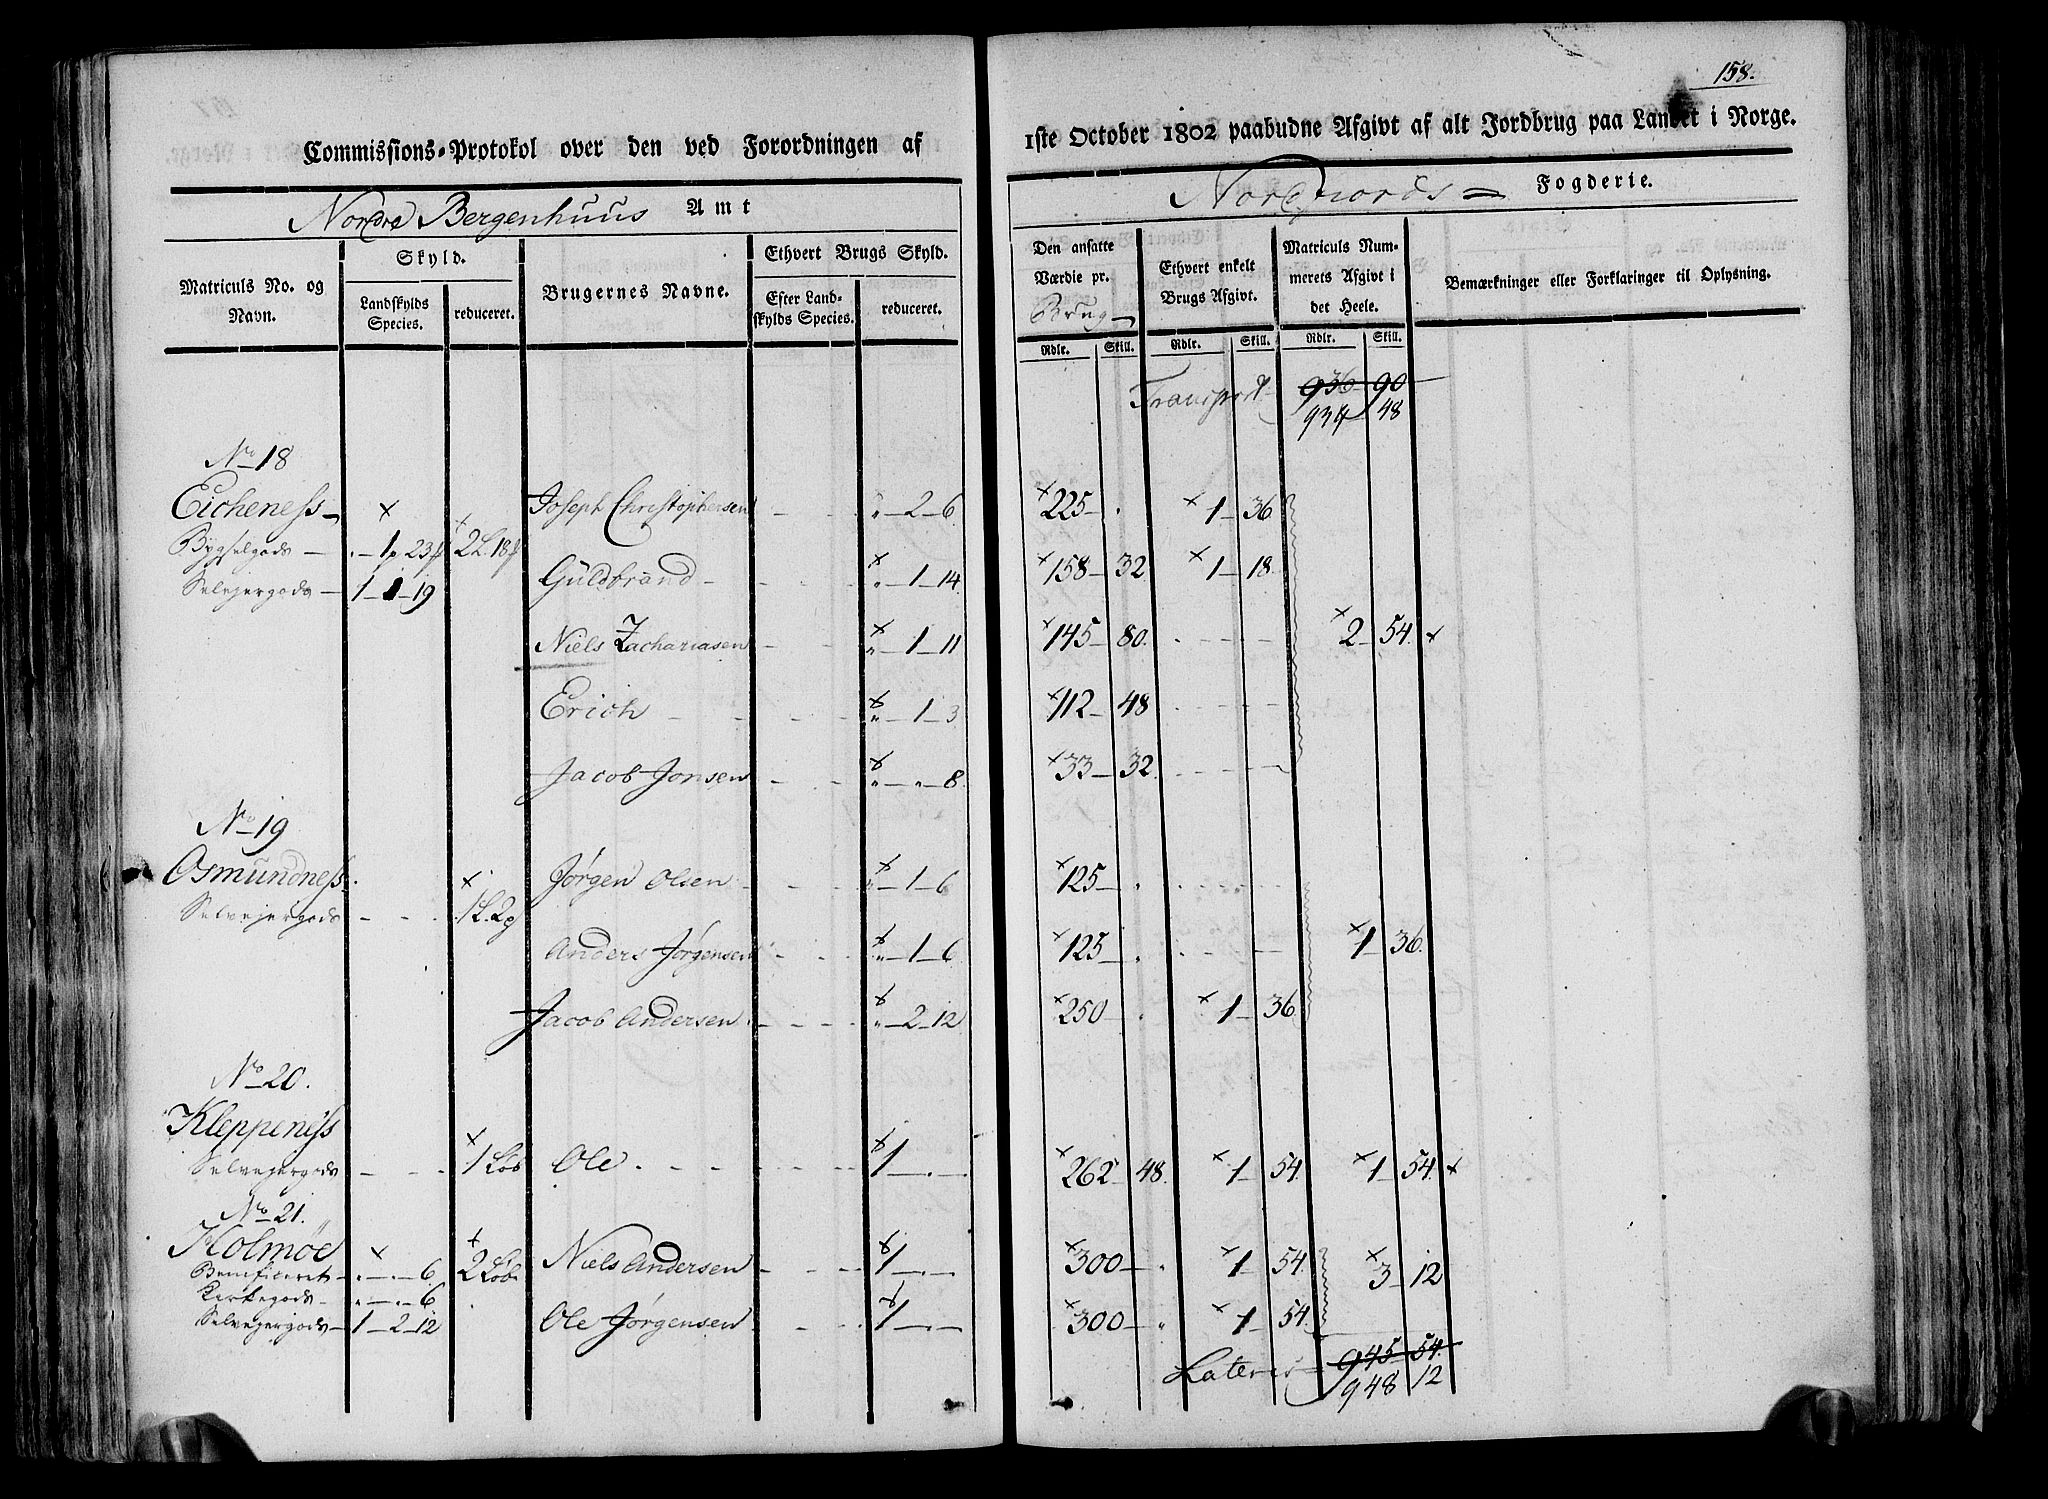 158.
Commissions-Protokol over den ved Forordningen af 1ste October 1802 paabudne Afgivt af alt Jordbrug paa Landet i Norge.
Nordre Bergenhuus Amt
Nordfiords Fogderie.
Matriculs No. og Navn.
Skyld.
Landskylds Species.
reduceret.
Brugernes Navne.
Ethvert Brugs Skyld.
Efter Landskylds Species.
reduceret.
Den ansatte Værdie pr. Brug
Ethvert enkelt Brugs Afgivt.
Matriculs Nummerets Afgivt i det Heele.
Bemærkninger eller Forklaringer til Oplysning.
Rdlr. Skill. Rdlr. Skill. Rdlr. Skill.
Transport 936 90
934 48
No 18
Eicheness Joseph Christophersen " 2 6 225 . 1 36
Bygselgods " 1p 23 2L. 18
Selvejergods 1 1 19 Guldbrand " 1 14 158 32 1 18
Niels Zachariasen " 1 11 145 80. 2 54.
Erich " 1 3 112 48
Jacob Jonsen " " 8. 33 32
No 19
Osmundness Jørgen Olsen " 1 6 125 "
Selvejergods 1L. 2p
Anders Jørgensen " 1 6 125 " 1 36.
Jacob Andersen " 2 12 250 " 1 36
No 20.
Kleppeness
Selvejergods 1 Løb Ole 1 262 48. 1 54. 1 54.
No 21.
Holmøe Niels Andersen 1 300 " 1 54. 3 12
Beneficeret " " 6. 2 Løb
Kirkegods " " 6
Selvejergods 1 2 12 Ole Jørgensen 1 300 " 1 54.
Lateris 945 54.
948 12